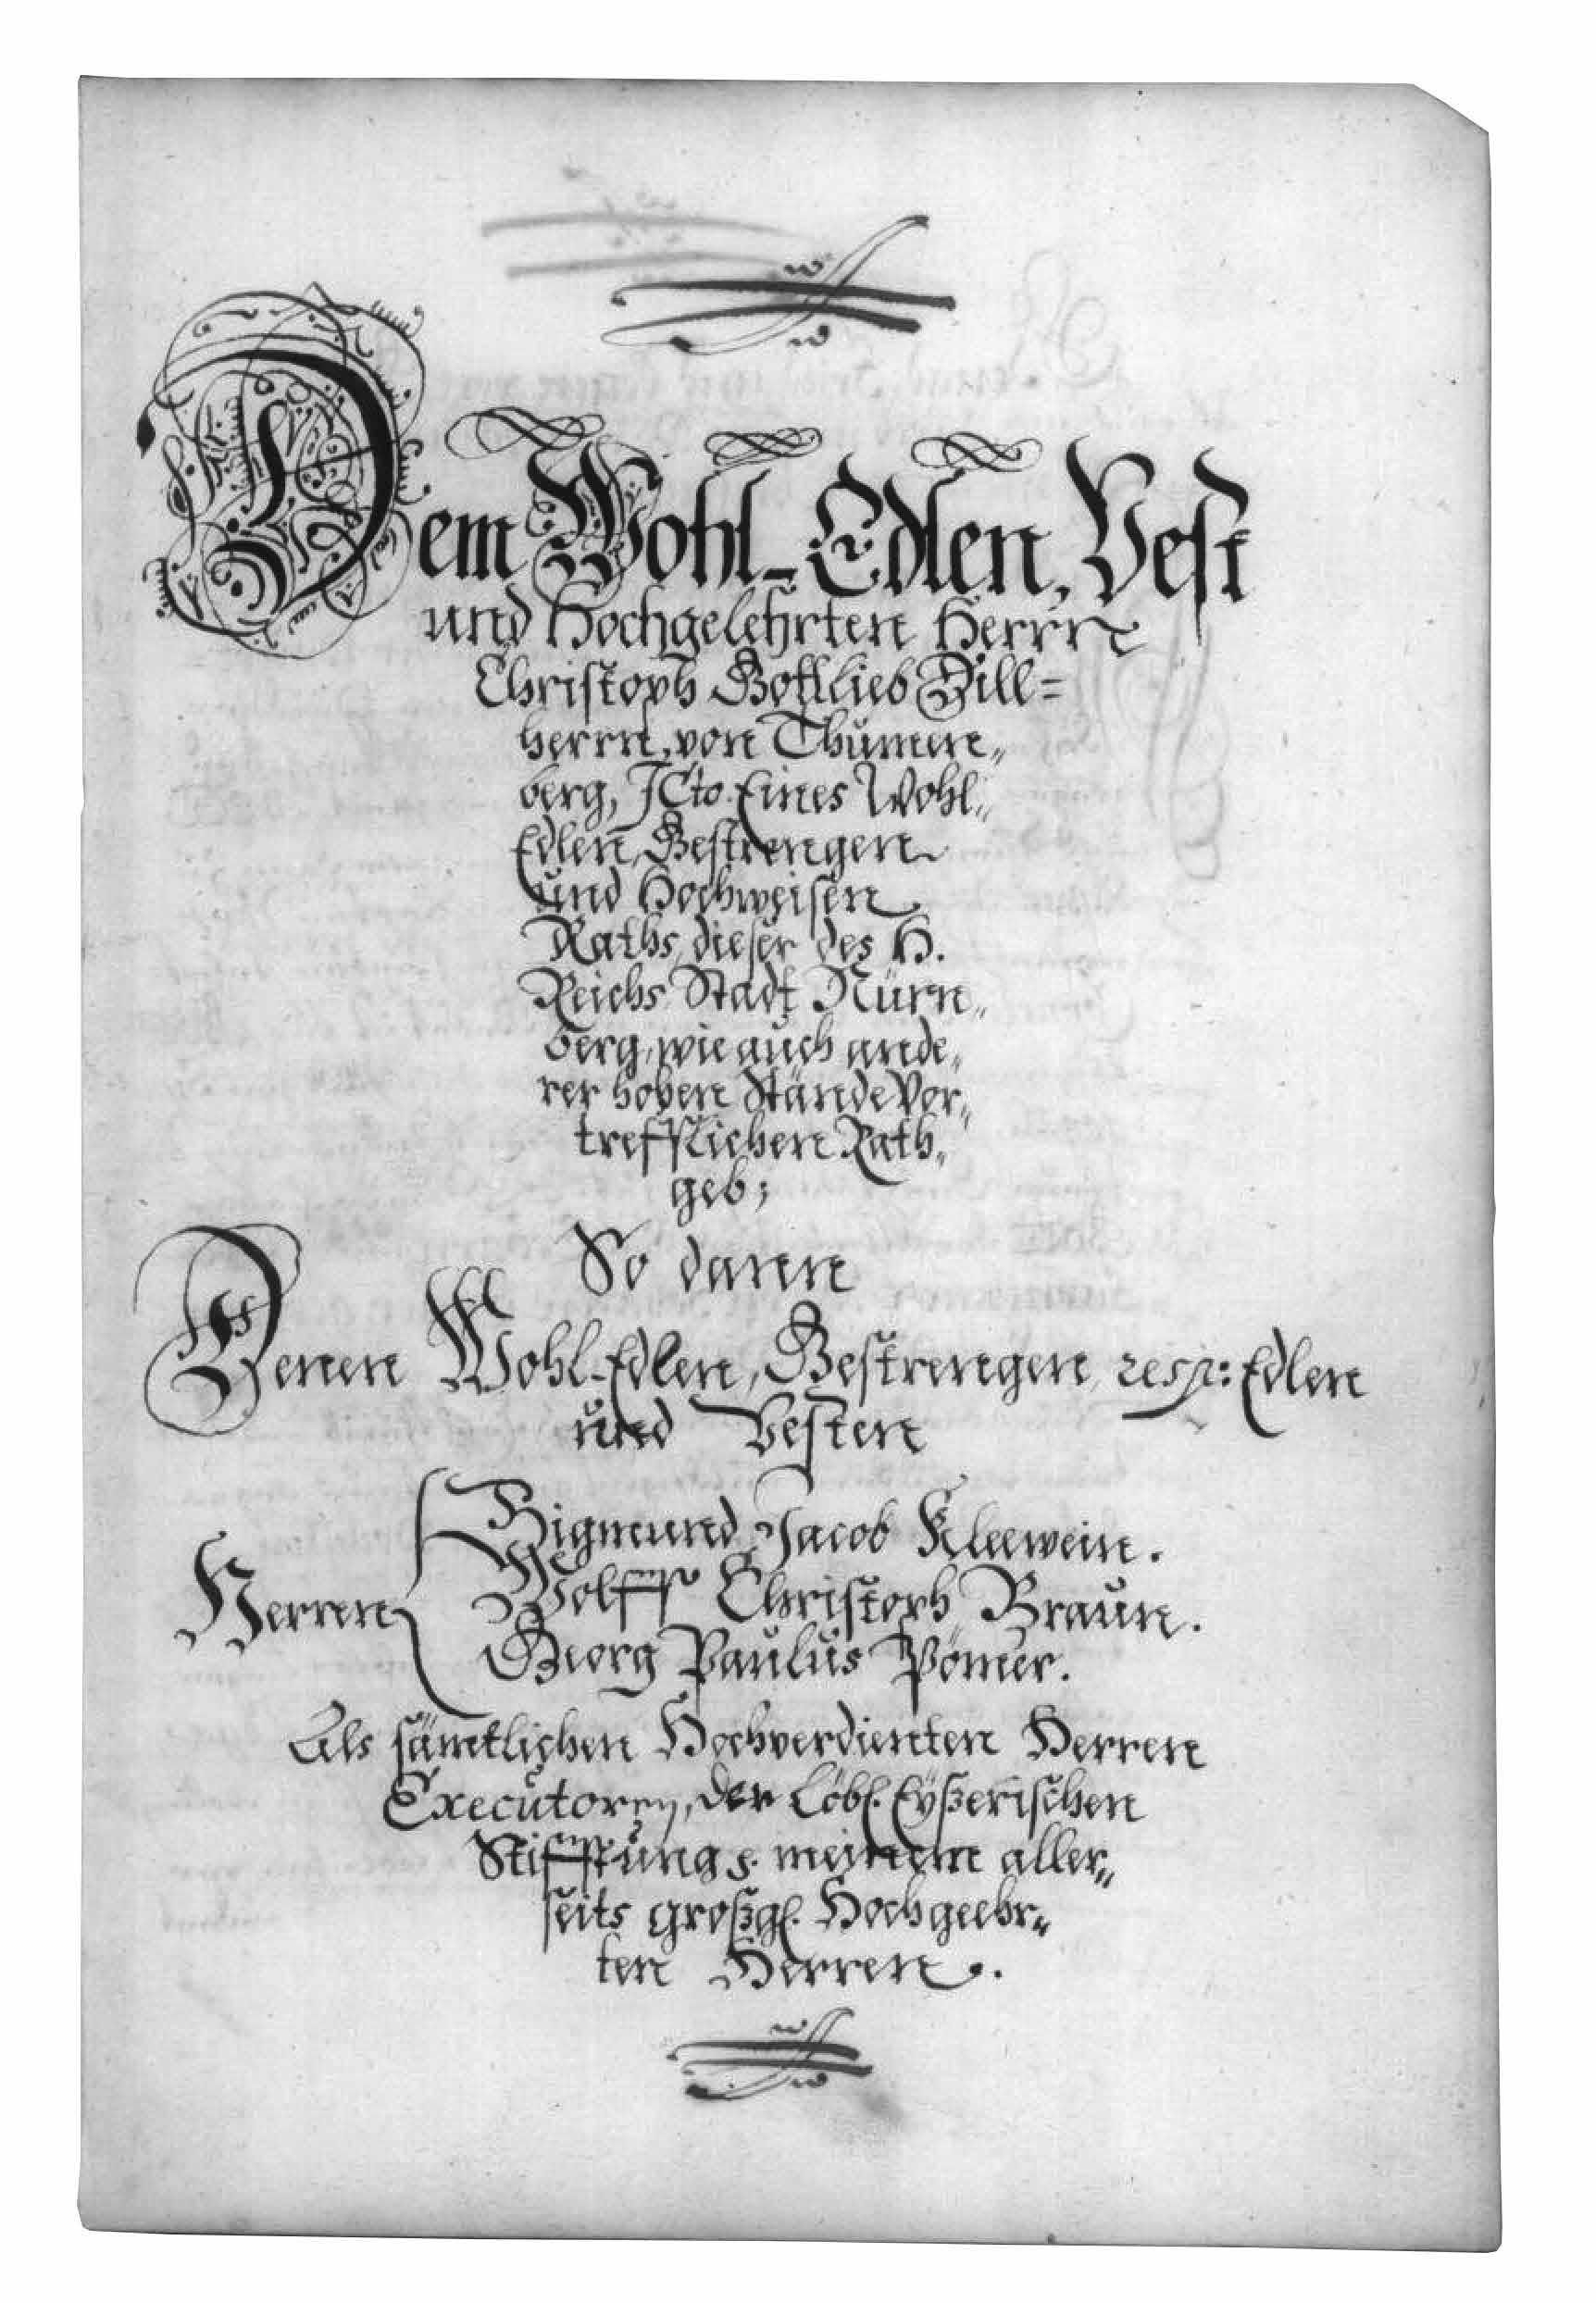 Dem Wohl-Edlen, Vest
und Hochgelehrten Herrn
Christoph Gottlieb Dill=
herrn, von Thumen„
berg, JCto. Eines Wohl„
Edlen, Gestrengen
und Hochweisen
Raths, dieser des H.
Reichs Stadt Nürn„
berg, wie auch ande„
rer hohen Stände Vor„
trefflichen Rath„
geb;
So dann
Denen Wohl-Edlen, Gestrengen, resp: Edlen
und Vesten
Sigmund Jacob Kleewein.
Herren Wolff Christoph Braun.
Georg Paulus Pömer.
Als sämtlichen Hochverdienten Herren
Executorn, der Löbl. Eyßerischen
Stifftung meinen aller„
seits großgl. Hochgeehr„
ten Herren.